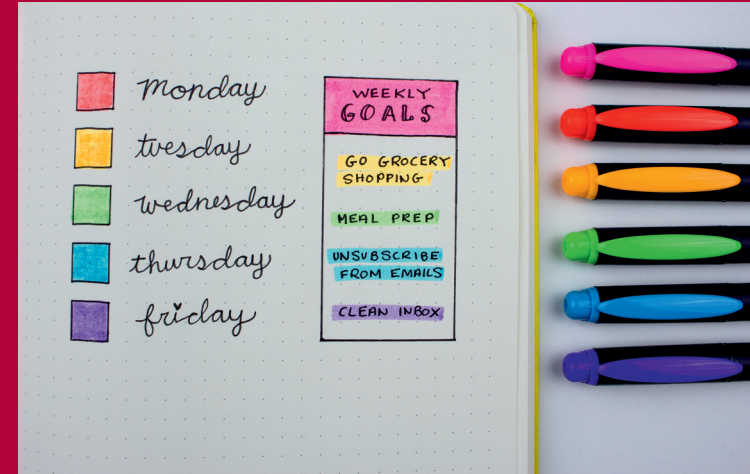 monday
tuesday
wednesday
thursday
friday
WEEKLY
GOALS
GO GROCERY
SHOPPING
MEAL PREP
UNSUBSCRIBE
FROM EMAILS
CLEAN INBOX